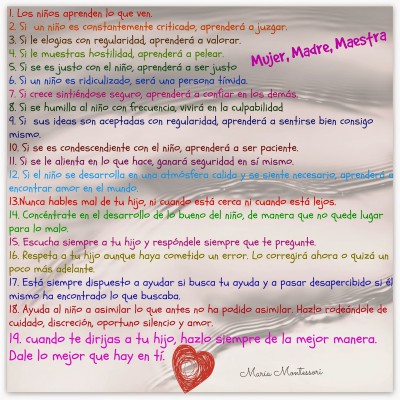 1. Los niños aprenden lo que ven.
2. Si un niño es constantemente criticado, aprenderá a juzgar.
3. Si le elogias con regularidad, aprenderá a valorar.
4. Si le muestras hostilidad, aprenderá a pelear.
5. Si se es justo con el niño, aprenderá a ser justo
6. Si un niño es ridiculizado, será una persona tímida.
7. Si crece sintiéndose seguro, aprenderá a confiar en los demás.
8. Si se humilla al niño con frecuencia, vivirá en la culpabilidad
9. Si sus ideas son aceptadas con regularidad, aprenderá a sentirse bien consigo
mismo.
10. Si se es condescendiente con el niño, aprenderá a ser paciente.
11. Si se le alienta en lo que hace, ganará seguridad en sí mismo.
12. Si el niño se desarrolla en una atmósfera calida y se siente necesario, aprenderá a
encontrar amor en el mundo.
13.Nunca hables mal de tu hijo, ni cuando está cerca ni cuando está lejos.
14. Concéntrate en el desarrollo de lo bueno del niño, de manera que no quede lugar
para lo malo.
15. Escucha siempre a tu hijo y respóndele siempre que te pregunte.
16. Respeta a tu hijo aunque haya cometido un error. Lo corregirá ahora o quizá un
poco más adelante.
17. Está siempre dispuesto a ayudar si busca tu ayuda y a pasar desapercibido si él
mismo ha encontrado lo que buscaba.
18. Ayuda al niño a asimilar lo que antes no ha podido asimilar. Hazlo rodeándole de
cuidado, discreción, oportuno silencio y amor.
19. cuando te dirijas a tu hijo, hazlo siempre de la mejor manera.
Dale lo mejor que hay en tí.
Mujer, Madre, Maestra
María Montessori